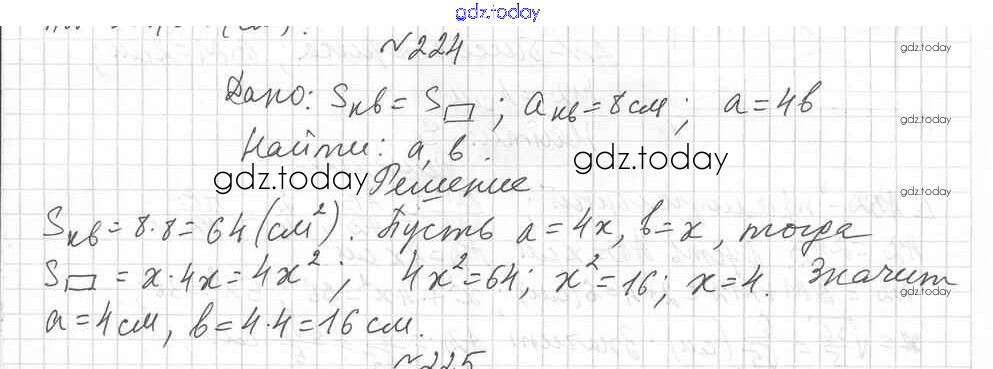 gdz.today
№224
gdz.today
Дано: Sкв = S▭; aкв = 8см; a = 4b
gdz.today
Найти: a, b.
gdz.today
gdz.today
gdz.today
Решение
gdz.today
Sкв = 8·8 = 64 (см²). Пусть a = 4x, b = x, тогда
gdz.today
S▭ = x·4x = 4x²; 4x² = 64; x² = 16; x = 4. Значит
gdz.today
a = 4см, b = 4·4 = 16 см.
№225